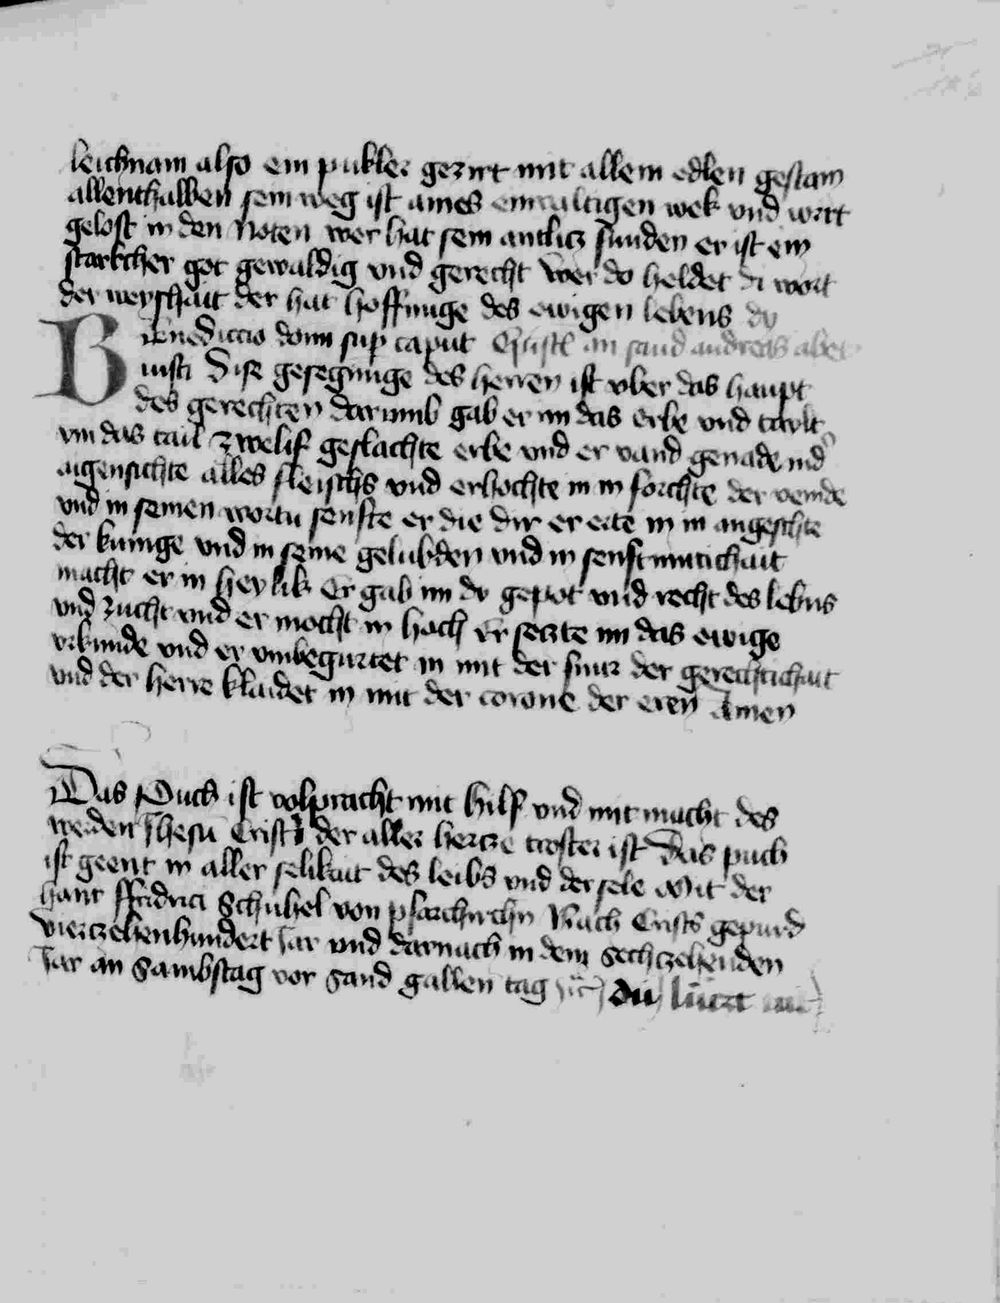 leichnam also ein pukler geziert mit allem edlen gestain
allenthalben sein weg ist aines einvaltigen wek vnd wirt
gelost in den noten wer hat sein antlicz funden er ist ein
starkcher got gewaldig vnd gerecht wer do heldet di wort
der weyshait der hat hoffnuge des ewigen lebens
Benediccio domi sup caput Epistl an sand andreas abet
iusti Dise gesegnuge des herren ist vber das haupt
des gerechten darumb gab er im das erbe vnd tailt
im das tail zwelif geslachte erbe vnd er vand genade in d
augensichte alles fleischs vnd erhochte in in forchte der veinde
vnd in seinen wortn senfte er die dir er erte in in angesichte
der kunige vnd in seine gelubden vnd in senftmutichait
macht er in heylik Er gab im dy gepot vnd recht des lebns
vnd zucht vnd er mocht in hoch Er seczte im das ewige
vrkunde vnd er vmbegurtet in mit der snur der gerechtichait
vnd der herre klaidet in mit der corone der eren Amen
Das Puch ist volpracht mit hilf vnd mit macht des
werden Jhesu Cristi der aller hercze troster ist Das puch
ist geent in aller selikait des leibs vnd der sele Mit der
hant ffridrici Schuhel von pfarchirchn Nach Crists gepurd
vierczehenhundert Jar vnd darnach in dem Sechczehenden
Jar an Sambstag vor Sand gallen tag